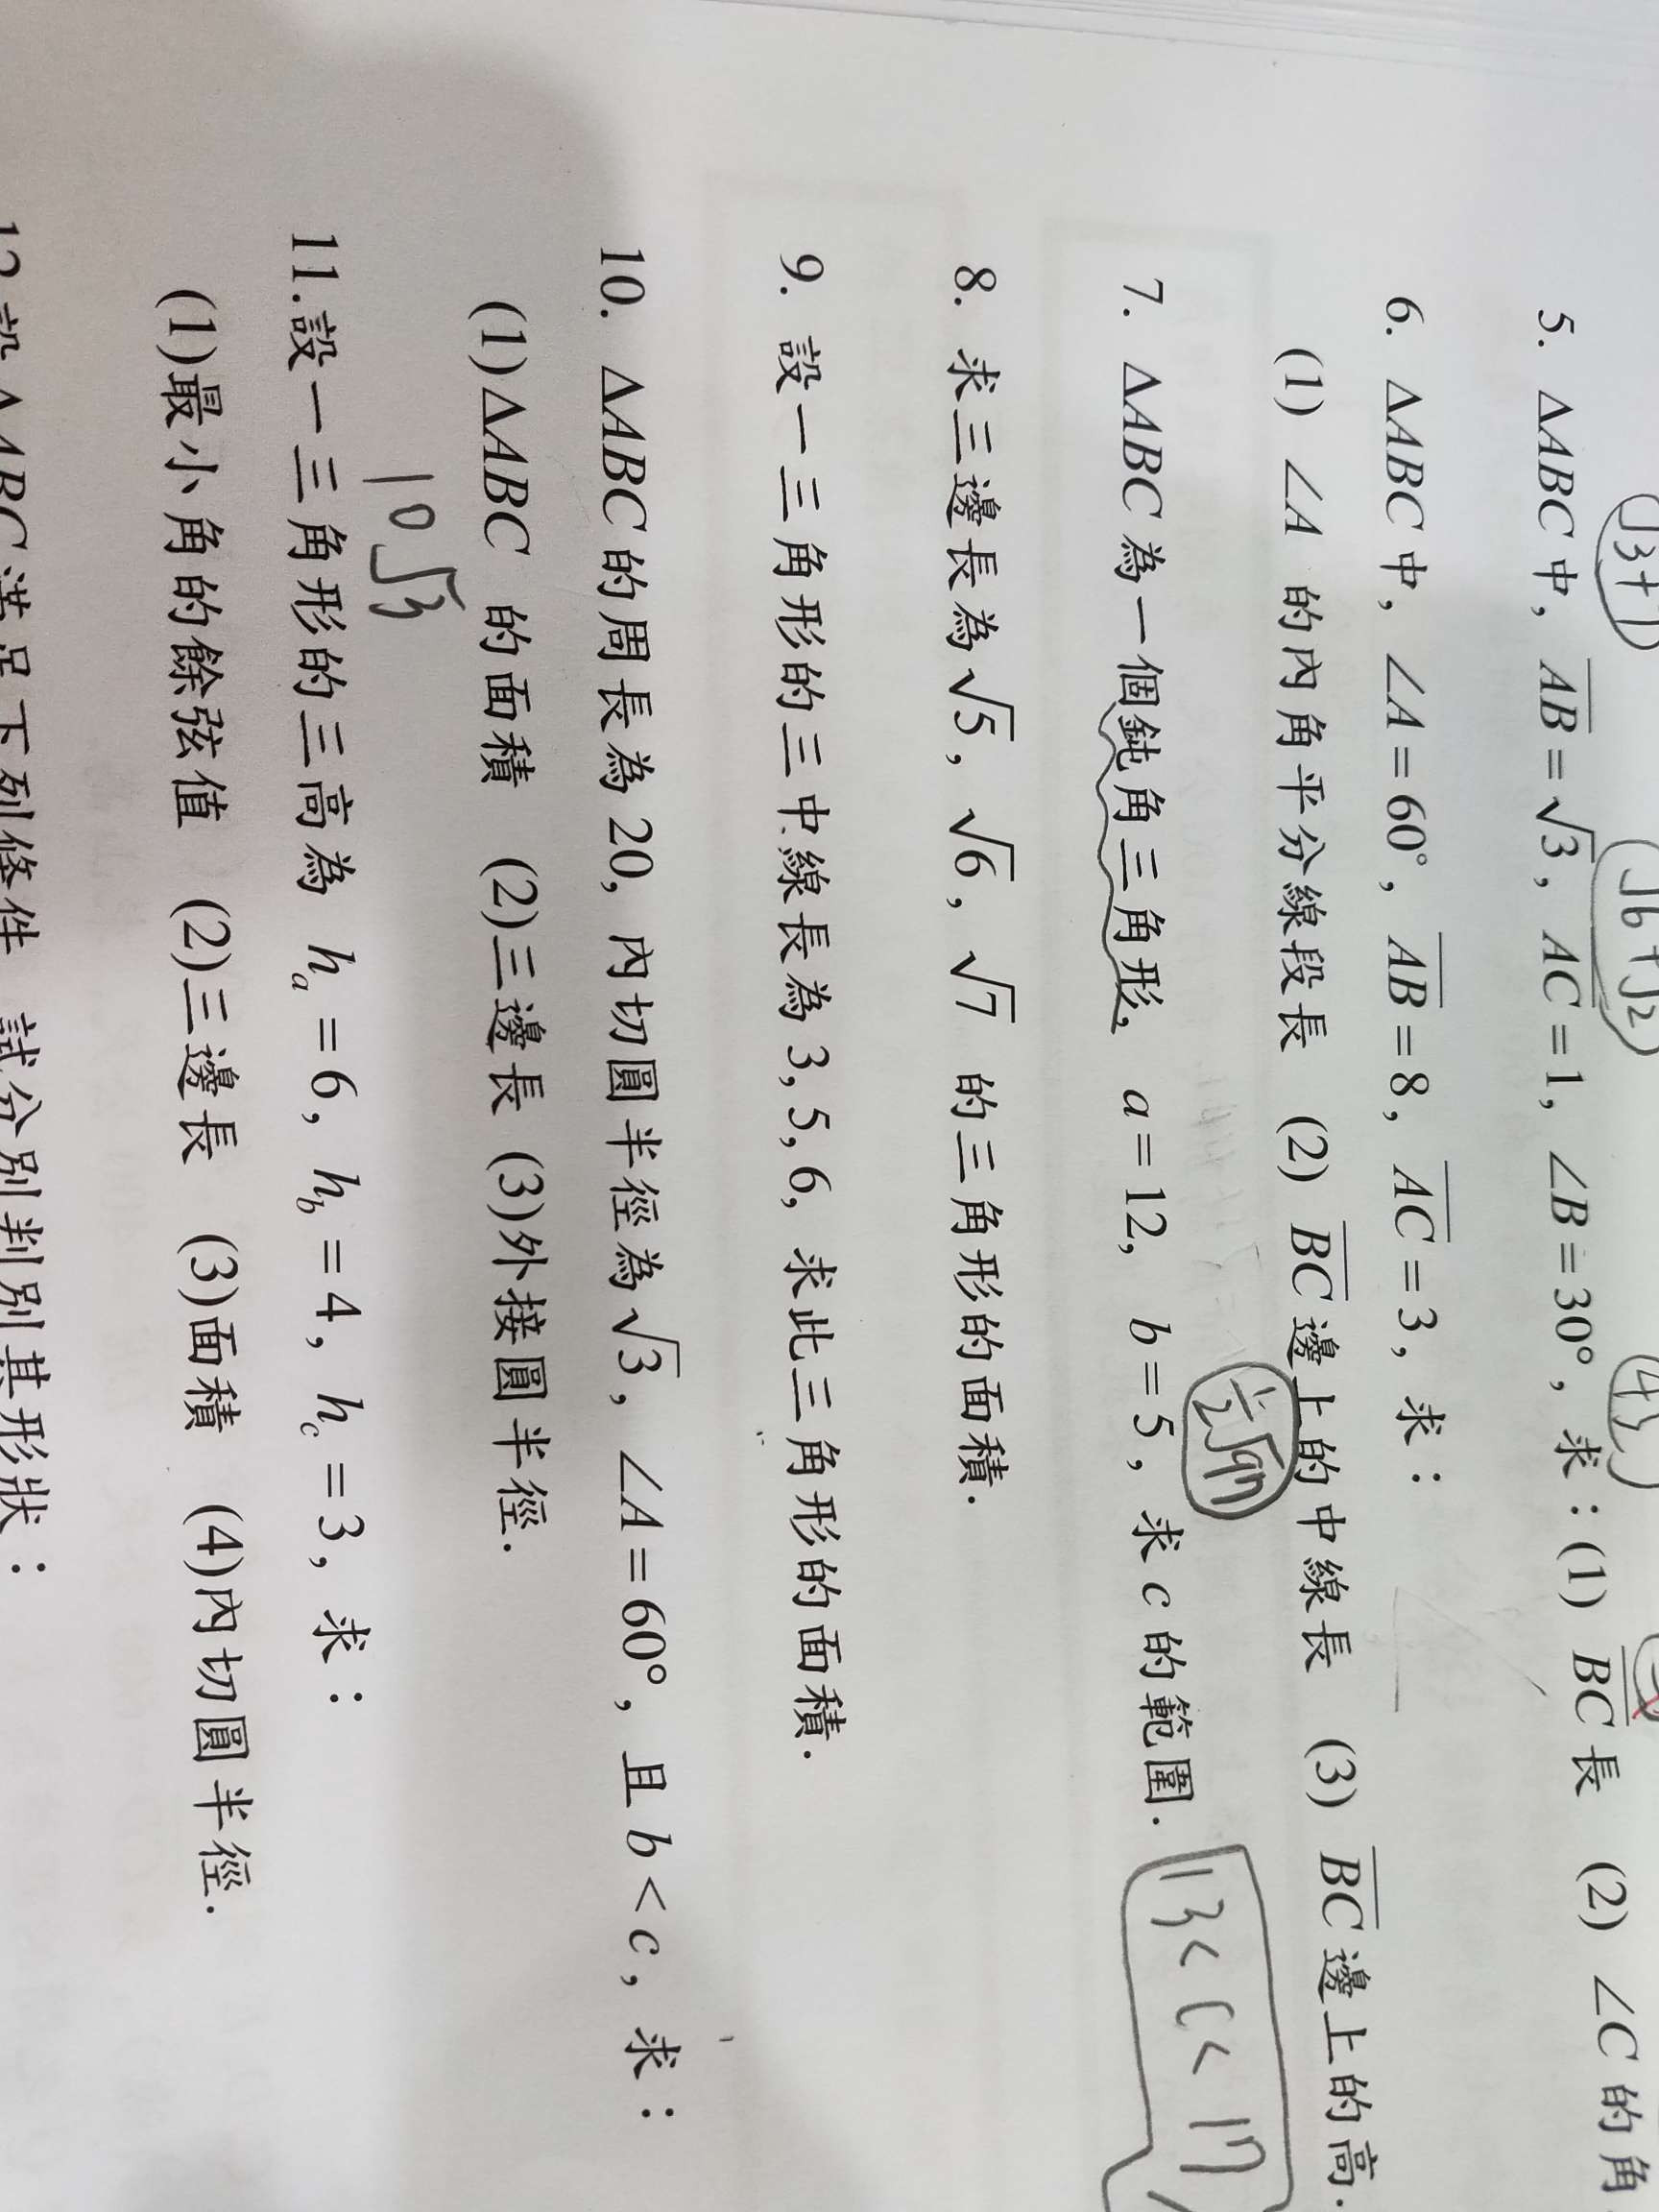 √3+1 √6+√2 4
5. △ABC中, AB=√3, AC=1, ∠B=30°, 求:(1) BC長 (2) ∠C的角
6. △ABC中, ∠A=60°, AB=8, AC=3, 求:
(1) ∠A 的內角平分線段長 (2) BC邊上的中線長 (3) BC邊上的高.
½√97
7. △ABC為一個鈍角三角形, a=12, b=5, 求c的範圍. 13<c<17
8. 求三邊長為√5, √6, √7 的三角形的面積.
9. 設一三角形的三中線長為3,5,6, 求此三角形的面積.
10. △ABC的周長為20, 內切圓半徑為√3, ∠A=60°, 且b<c, 求:
(1)△ABC 的面積 (2)三邊長 (3)外接圓半徑.
10√3
11.設一三角形的三高為 hₐ=6, h_b=4, h_c=3, 求:
(1)最小角的餘弦值 (2)三邊長 (3)面積 (4)內切圓半徑.
12.設△ABC滿足下列條件, 試分別判別其形狀: